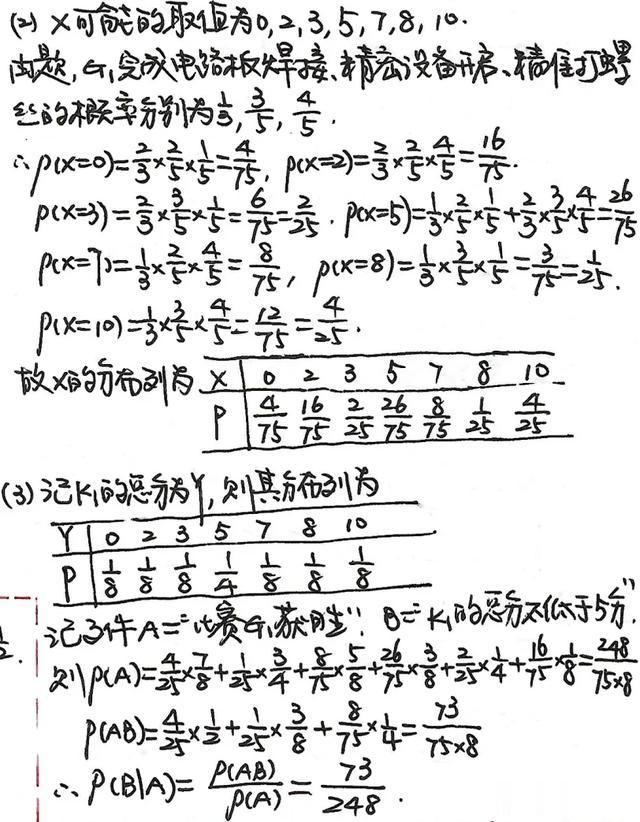 (2) X可能的取值为0,2,3,5,7,8,10.
由题, G₁完成电路板焊接、精密设备开启、精准打螺
丝的概率分别为1/3, 3/5, 4/5.
∴ P(X=0)=2/3×2/5×1/5=4/75, P(X=2)=2/3×2/5×4/5=16/75.
P(X=3)=2/3×3/5×1/5=6/75=2/25. P(X=5)=1/3×2/5×1/5+2/3×3/5×4/5=26/75
P(X=7)=1/3×2/5×4/5=8/75, P(X=8)=1/3×3/5×1/5=3/75=1/25.
P(X=10)=1/3×3/5×4/5=12/75=4/25.
故X的分布列为 X 0 2 3 5 7 8 10
P 4/75 16/75 2/25 26/75 8/75 1/25 4/25
(3) 记K₁的总分为Y, 则其分布列为
Y 0 2 3 5 7 8 10
P 1/8 1/8 1/8 1/4 1/8 1/8 1/8
记事件A="比赛G₁获胜": B="K₁的总分不低于5分".
则P(A)=4/25×7/8+1/25×3/4+8/75×5/8+26/75×3/8+2/25×1/4+16/75×1/8=248/75×8
P(AB)=4/25×1/2+1/25×3/8+8/75×1/4=73/75×8
∴ P(B|A)=P(AB)/P(A)=73/248.